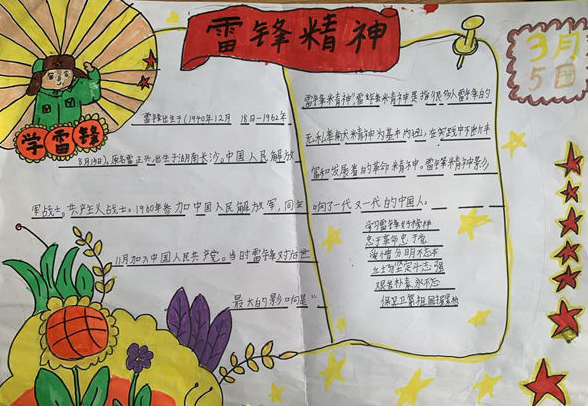 雷锋精神
3月
5日
学雷锋
雷锋出生于(1940年12月18日-1962年
8月15日)。原名雷正兴,出生于湖南长沙。中国人民解放
军战士。共产主义战士。1960年参加中国人民解放军,同年
11月加入中国共产党。当时雷锋对后世
最大的影响是“
雷锋精神”雷锋精神是指以雷锋的
无私奉献精神为基本内涵,在实践中不断丰
富和发展着的革命精神。雷锋精神影
响了一代又一代的中国人。
学习雷锋好榜样
忠于革命忠于党
爱憎分明不忘本
立场坚定斗志强
艰苦朴素永不忘
保卫祖国握紧枪